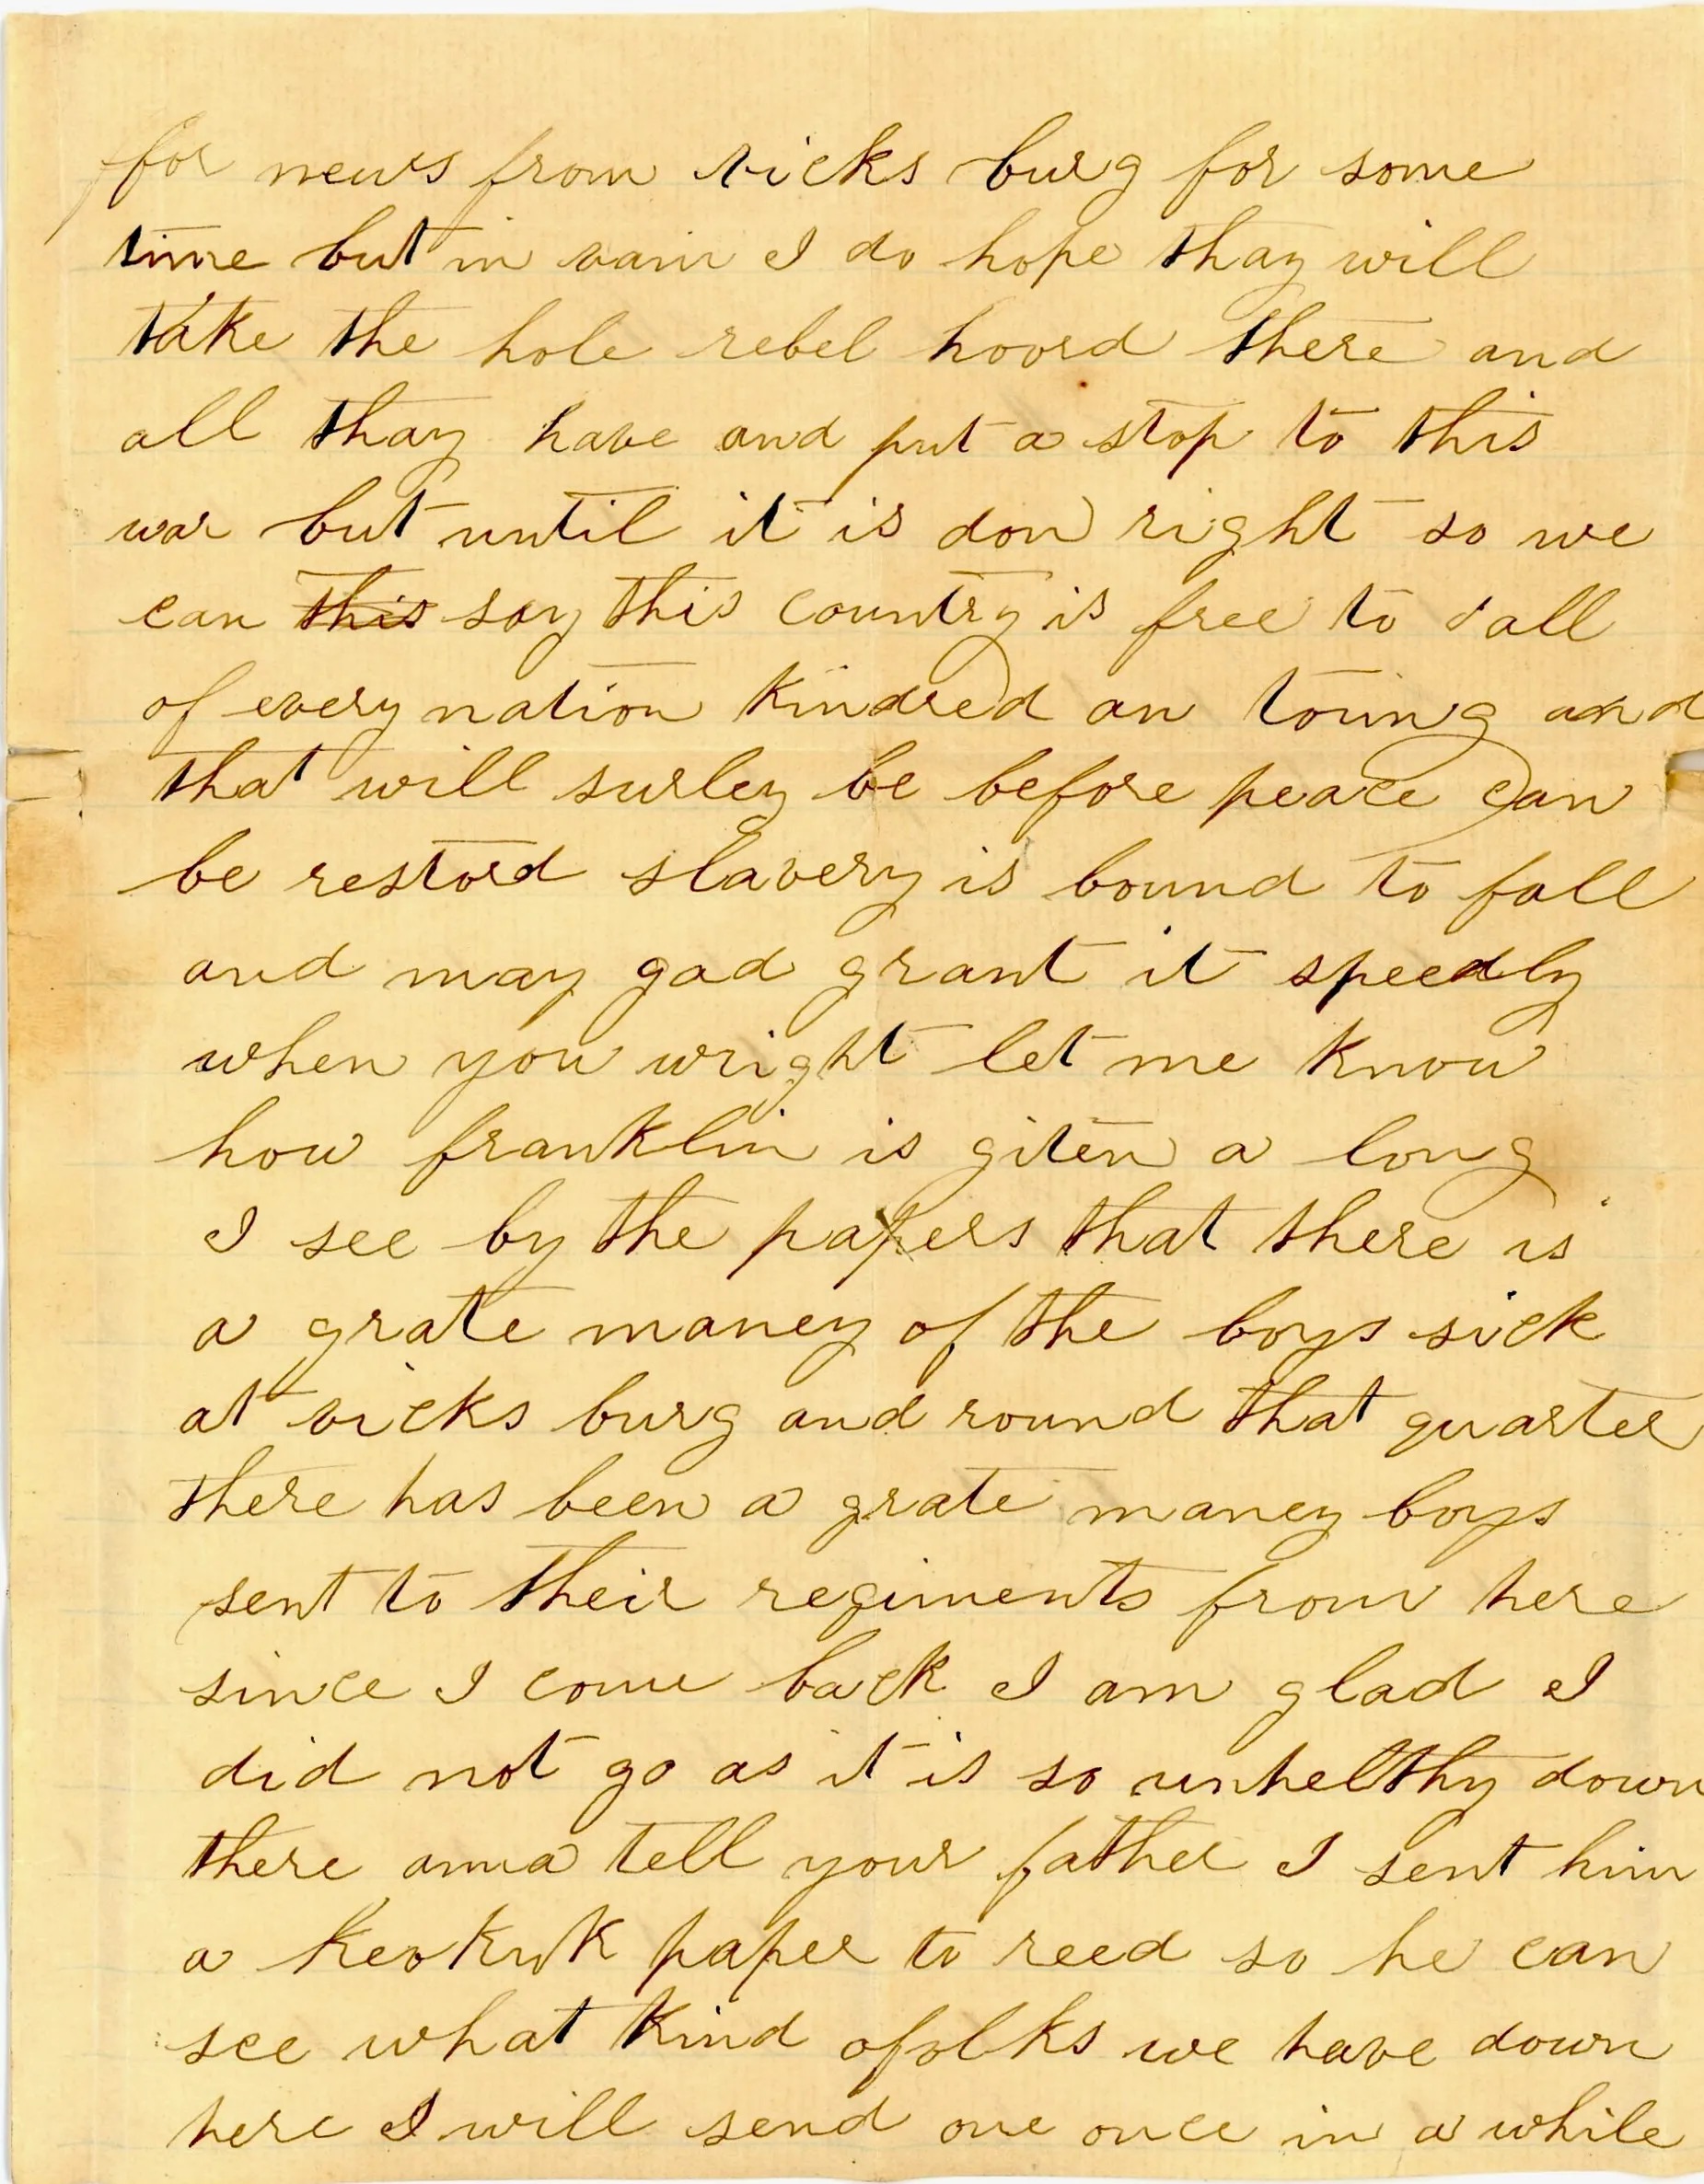 for news from vicks burg for some
time but in vain I do hope thay will
take the hole rebel hoord there and
all thay have and put a stop to this
war but until it is don right so we
can this say this country is free to all
of every nation kindred an toung and
that will surley be before peace can
be restord slavery is bound to fall
and may god grant it speedly
when you wright let me know
how franklin is giten a long
I see by the papers that there is
a grate maney of the boys sick
at vicks burg and round that quarter
there has been a grate maney boys
sent to their regiments from here
since I come back I am glad I
did not go as it is so unhelthy down
there anna tell your father I sent him
a keokuk paper to reed so he can
see what kind of olks we have down
here I will send one once in a while